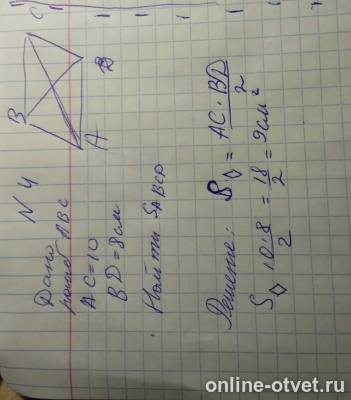 N 4
Дано
ромб ABC
AC=10
BD=8см
Найти SABCD
Решение: S◇ = AC·BD / 2
S◇ 10·8 / 2 = 18 / 2 = 9см²
B
A
C
online-otvet.ru